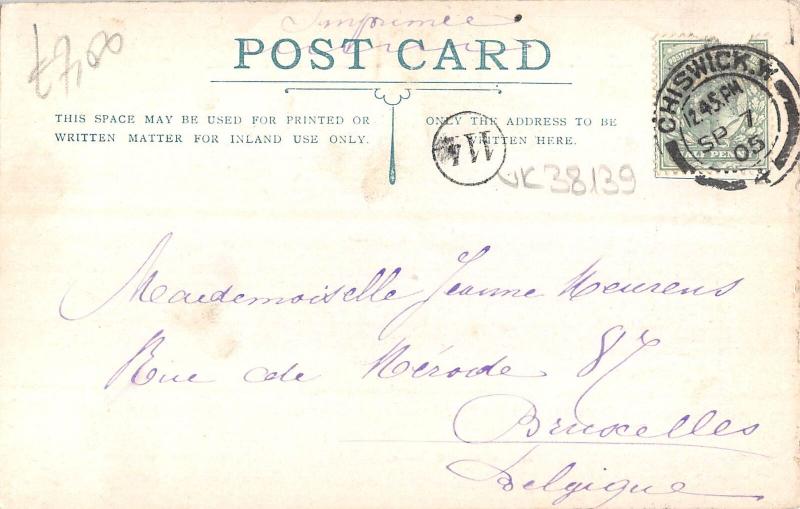 Imprimée
£7,00
POST CARD
THIS SPACE MAY BE USED FOR PRINTED OR
WRITTEN MATTER FOR INLAND USE ONLY.
ONLY THE ADDRESS TO BE
WRITTEN HERE.
CHISWICK.W
12.45.PM
SP 1
05
4
VK38139
Mademoiselle Jeanne Meurens
Rue de Mérode 87
Bruxelles
Belgique